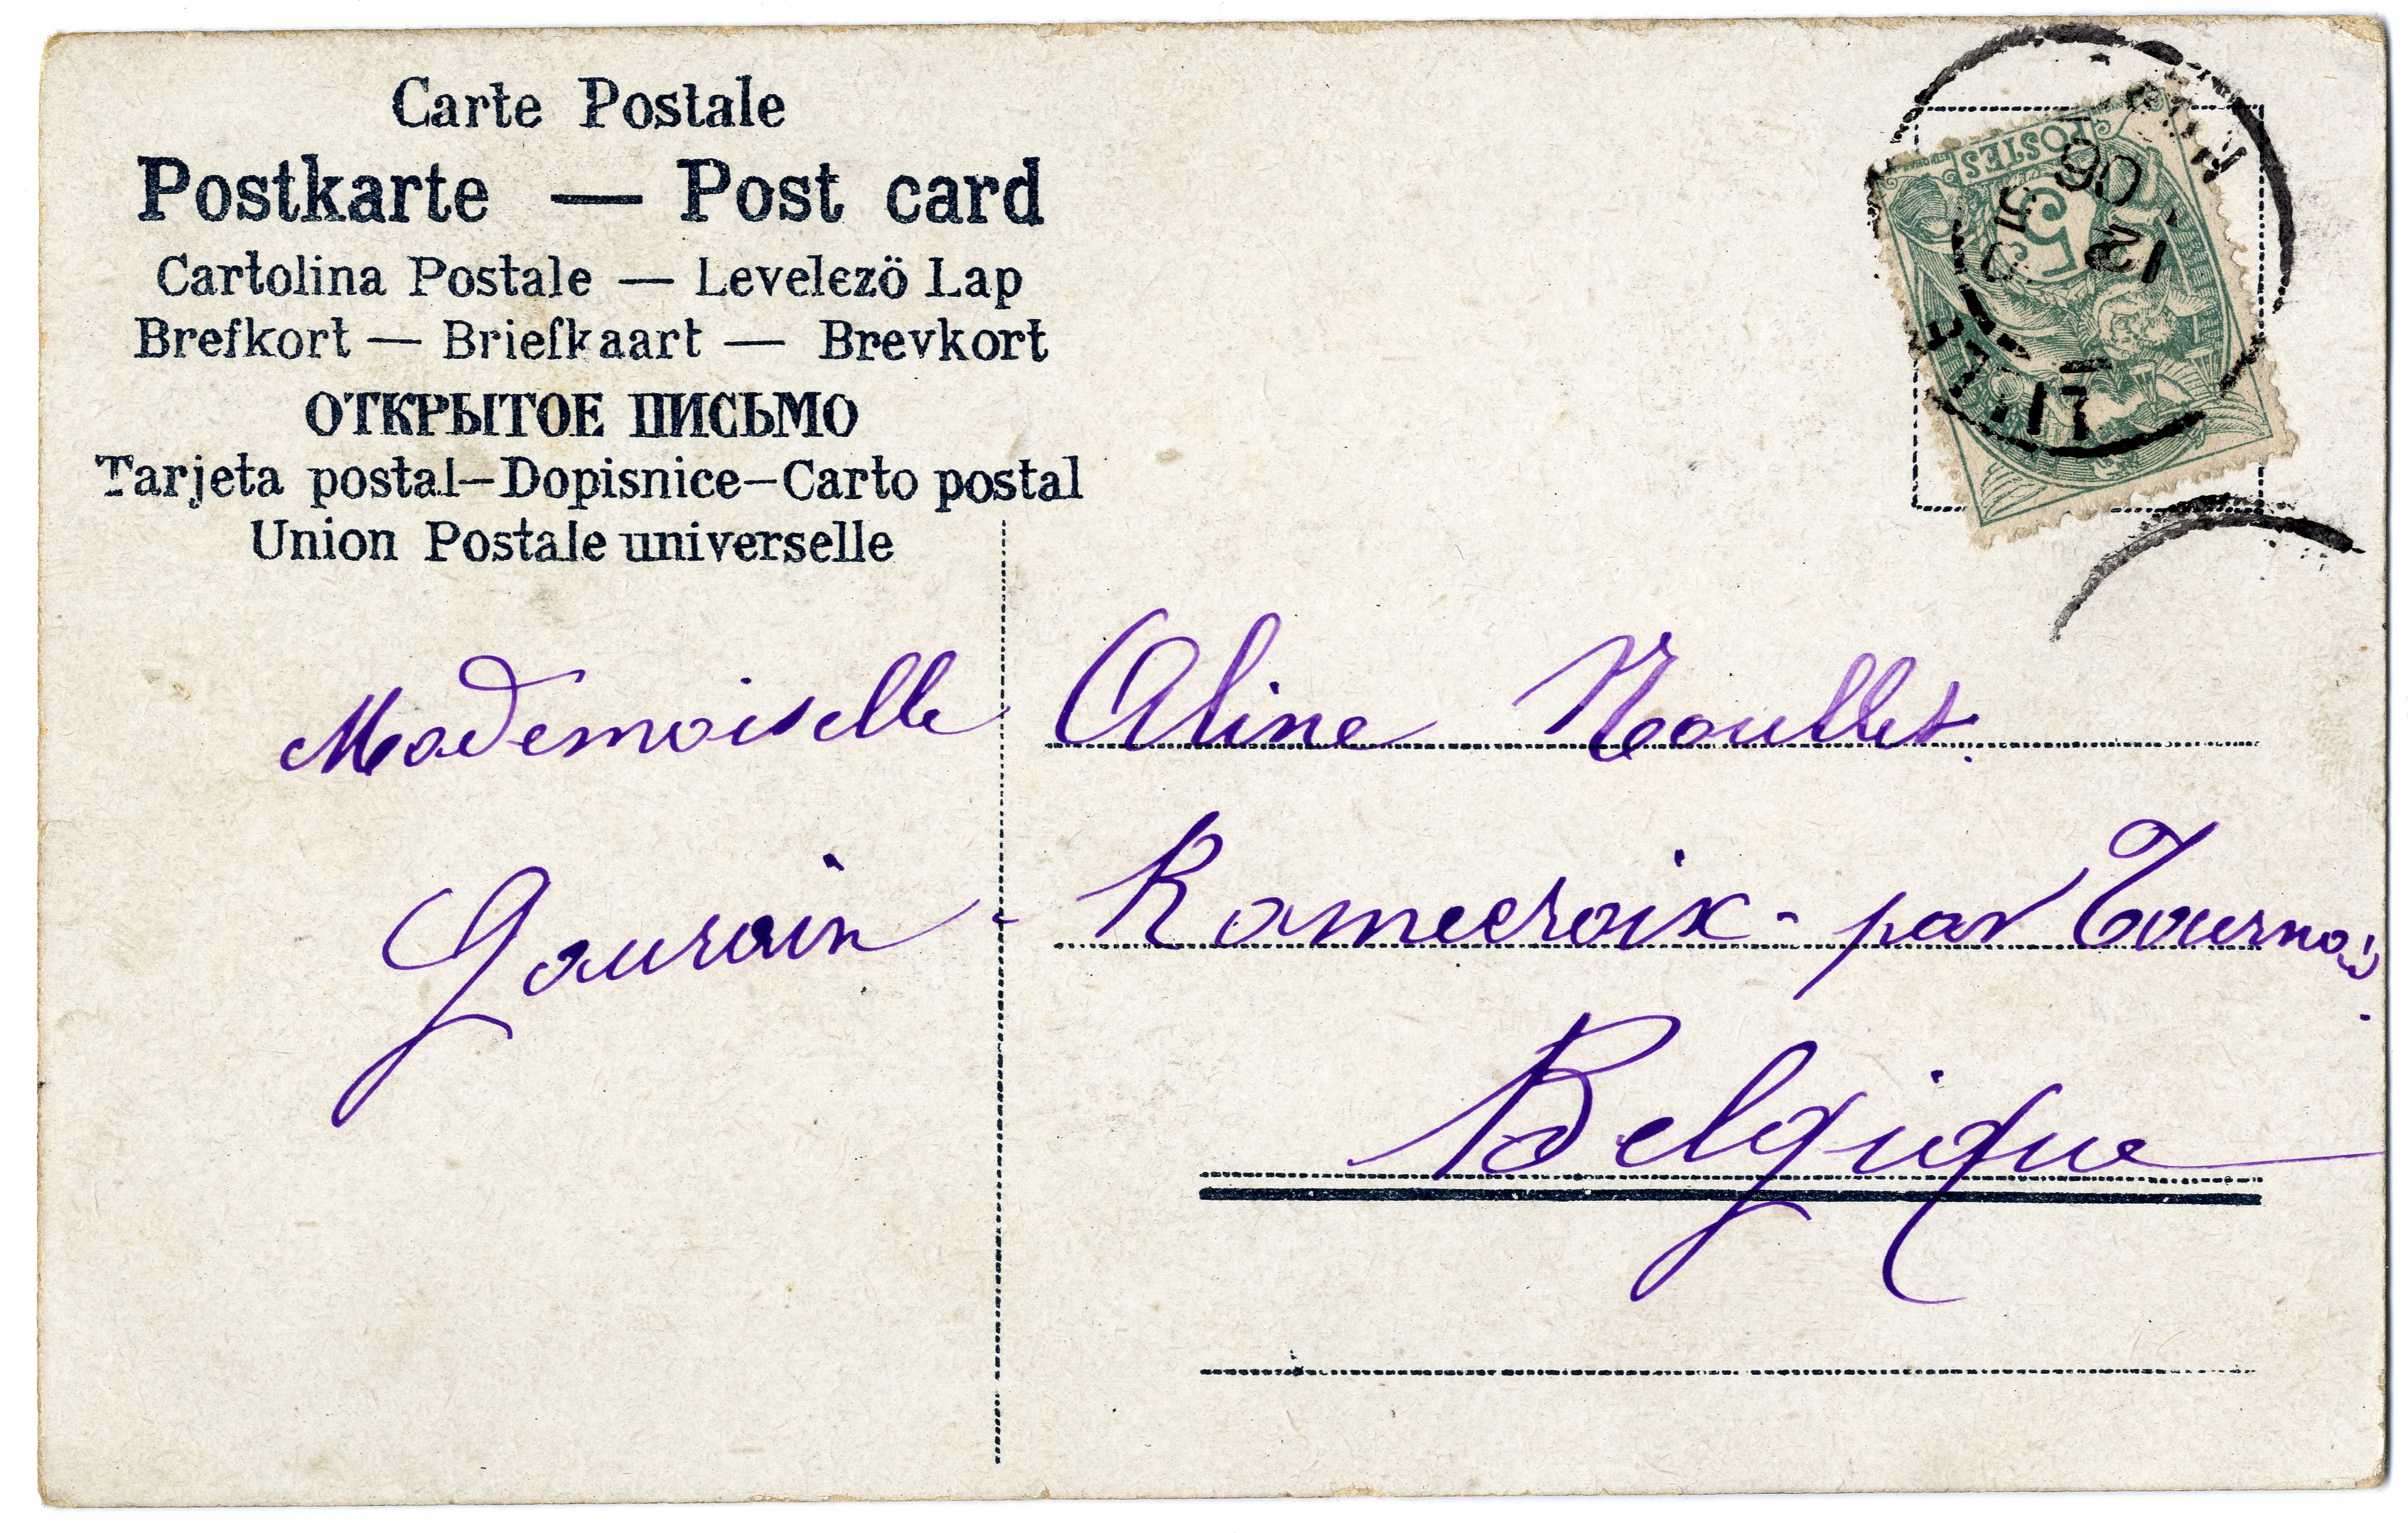 Carte Postale
Postkarte — Post card
Cartolina Postale — Levelező Lap
Brefkort — Briefkaart — Brevkort
ОТКРЫТОЕ ПИСЬМО
Tarjeta postal–Dopisnice–Carto postal
Union Postale universelle
POSTES
5
12
06
Mademoiselle Aline
Gaurain - Ramecroix - par Tournai
Belgique